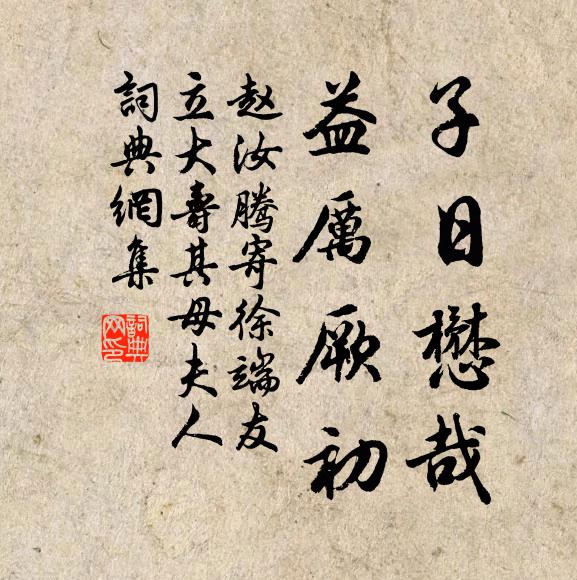 子日懋哉
益厲厥初
赵汝腾寄徐端友
立大壽其母夫人
詞典網集
詞典网印